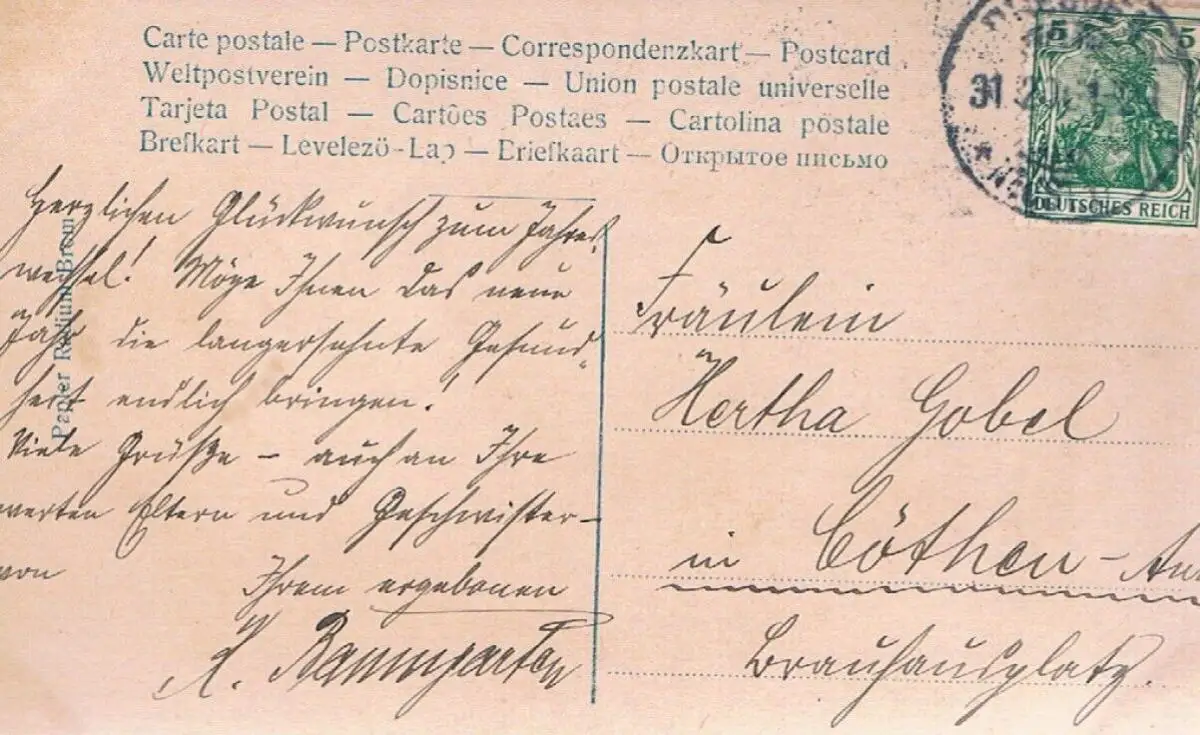 Carte postale — Postkarte — Correspondenzkart — Postcard
Weltpostverein — Dopisnice — Union postale universelle
Tarjeta Postal — Cartões Postaes — Cartolina postale
Brefkart — Levelezö-Lap — Briefkaart — Открытое письмо
Herzlichen Glückwunsch zum Jahres-
wechsel! Möge Ihnen das neue
Jahr die langersehnte Gesund-
heit endlich bringen!
Viele Grüße – auch an Ihre
werten Eltern und Geschwister –
von
Ihrem ergebenen
Baumgarten
Papier Radium-Brom
5 5
DEUTSCHES REICH
31.
Fräulein
Hertha Gobel
in Cöthen - An
Brauhausplatz.